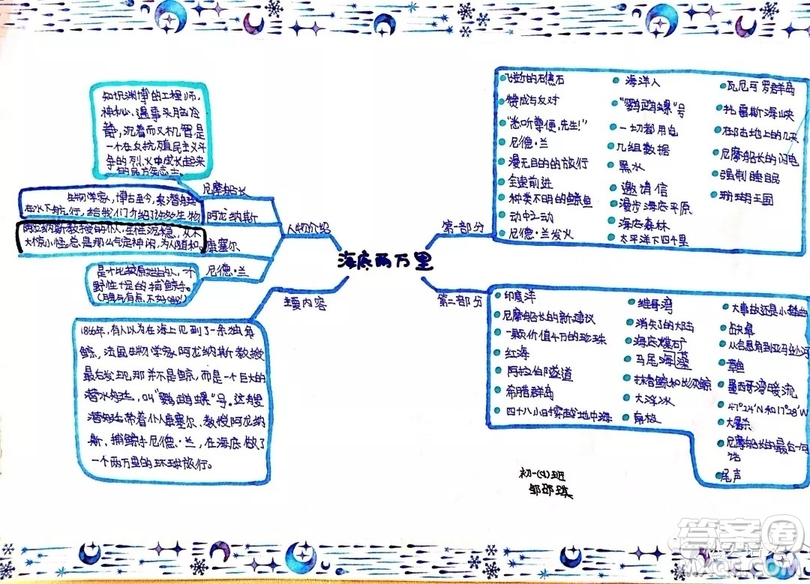 海底两万里
人物介绍
尼摩船长
知识渊博的工程师,
遇事头脑冷
静,沉着而又机智是
一个在反抗殖民主义斗
争的烈火中成长起来
阿龙纳斯
生物学家,博古通今,乘潜艇
在水下航行,给我们介绍许多生物
康塞尔
阿龙纳斯教授的仆人,生性沉稳,从不
大惊小怪,总是那么气定神闲,为人随和。
尼德·兰
是个比较原始的人,一个
野性十足的捕鲸手。
主要内容
1866年,有人以为在海上见到了一条独角
鲸,法国生物学家阿龙纳斯教授
最后发现,那并不是鲸,而是一个巨大的
潜水艇,叫“鹦鹉螺”号。这艘
潜艇带着仆人康塞尔、教授阿龙纳
斯、捕鲸手尼德·兰,在海底做了
一个两万里的环球旅行。
第一部分
飞逝的巨礁石
赞成与反对
“悉听尊便,先生!”
尼德·兰
漫无目的的旅行
全速前进
种类不明的鲸鱼
动中之动
尼德·兰发火
海洋人
“鹦鹉螺”号
一切都用电
几组数据
黑水
邀请信
漫步海底平原
海底森林
太平洋下四千里
瓦尼可罗群岛
托雷斯海峡
在陆地上的几天
尼摩船长的闪电
强制睡眠
珊瑚王国
第二部分
印度洋
尼摩船长的新建议
一颗价值千万的珍珠
红海
阿拉伯隧道
希腊群岛
四十八小时穿越地中海
维哥湾
消失了的大陆
海底煤矿
马尾海藻
抹香鲸和长须鲸
大浮冰
南极
大事故还是小插曲
缺氧
从合恩角到亚马逊河
章鱼
墨西哥湾暖流
47°24′N和17°28′W
大屠杀
尼摩船长的最后一句
话
尾声
初一(4)班
答案圈
MXQE.COM